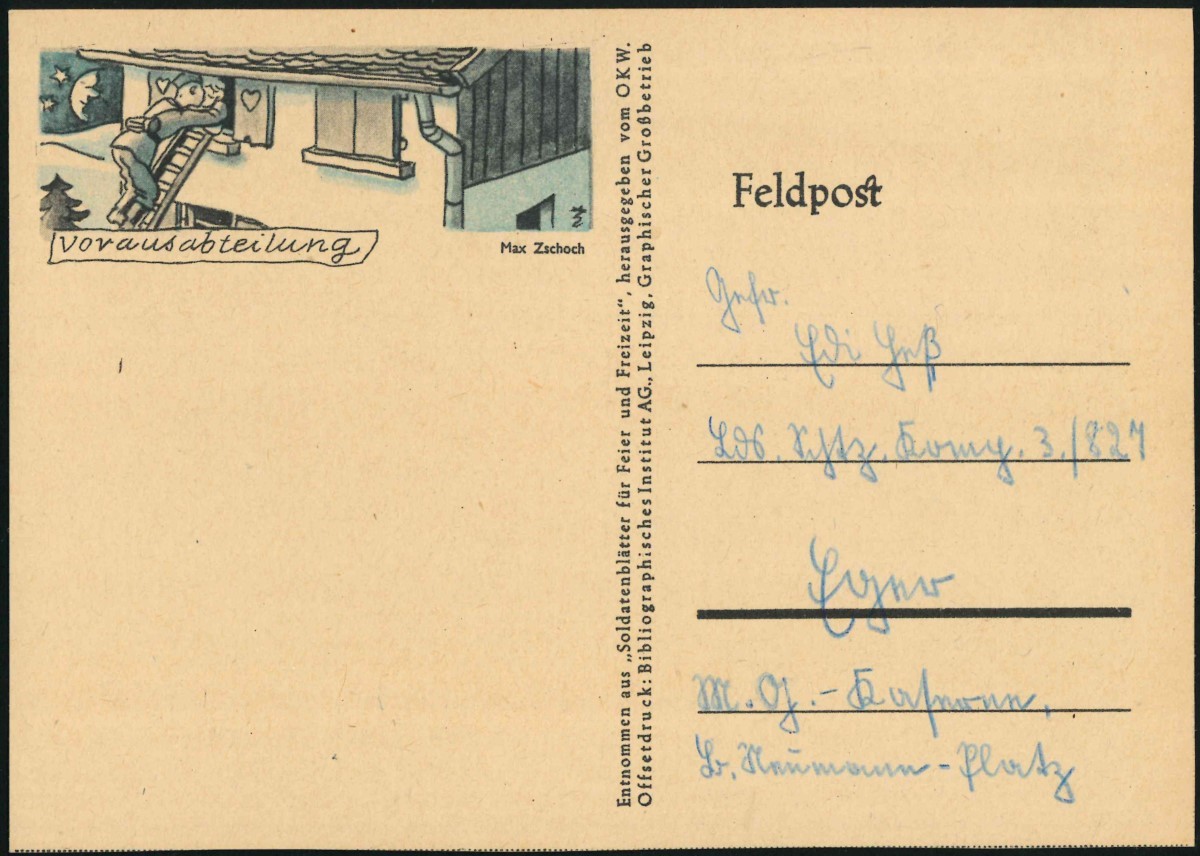 Vorausabteilung
Max Zschoch
Entnommen aus „Soldatenblätter für Feier und Freizeit“, herausgegeben vom OKW.
Offsetdruck: Bibliographisches Institut AG., Leipzig, Graphischer Großbetrieb
Feldpost
Gefr.
Edi Heß
Lds. Schtz. Komp. 3./827
Eger
Kaserne,
B. Neumann-Platz